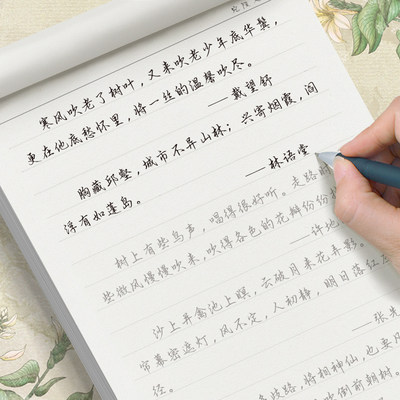 寒风吹老了树叶，又来吹老少年底华鬓，
更在他底愁怀里，将一丝的温馨吹尽。
——戴望舒
胸藏邱壑，城市不异山林；兴寄烟霞，阎
浮有如蓬岛。
——林语堂
树上有些鸟声，唱得很好听。走路时
些微风慢慢吹来，吹得各色的花瓣纷纷
——许地
沙上并禽池上暝，云破月来花弄影。
帘幕密遮灯，风不定，人初静，明日落红应
——张先
径。
多歧路，将相神仙，也要凡
吹倒前朝树。